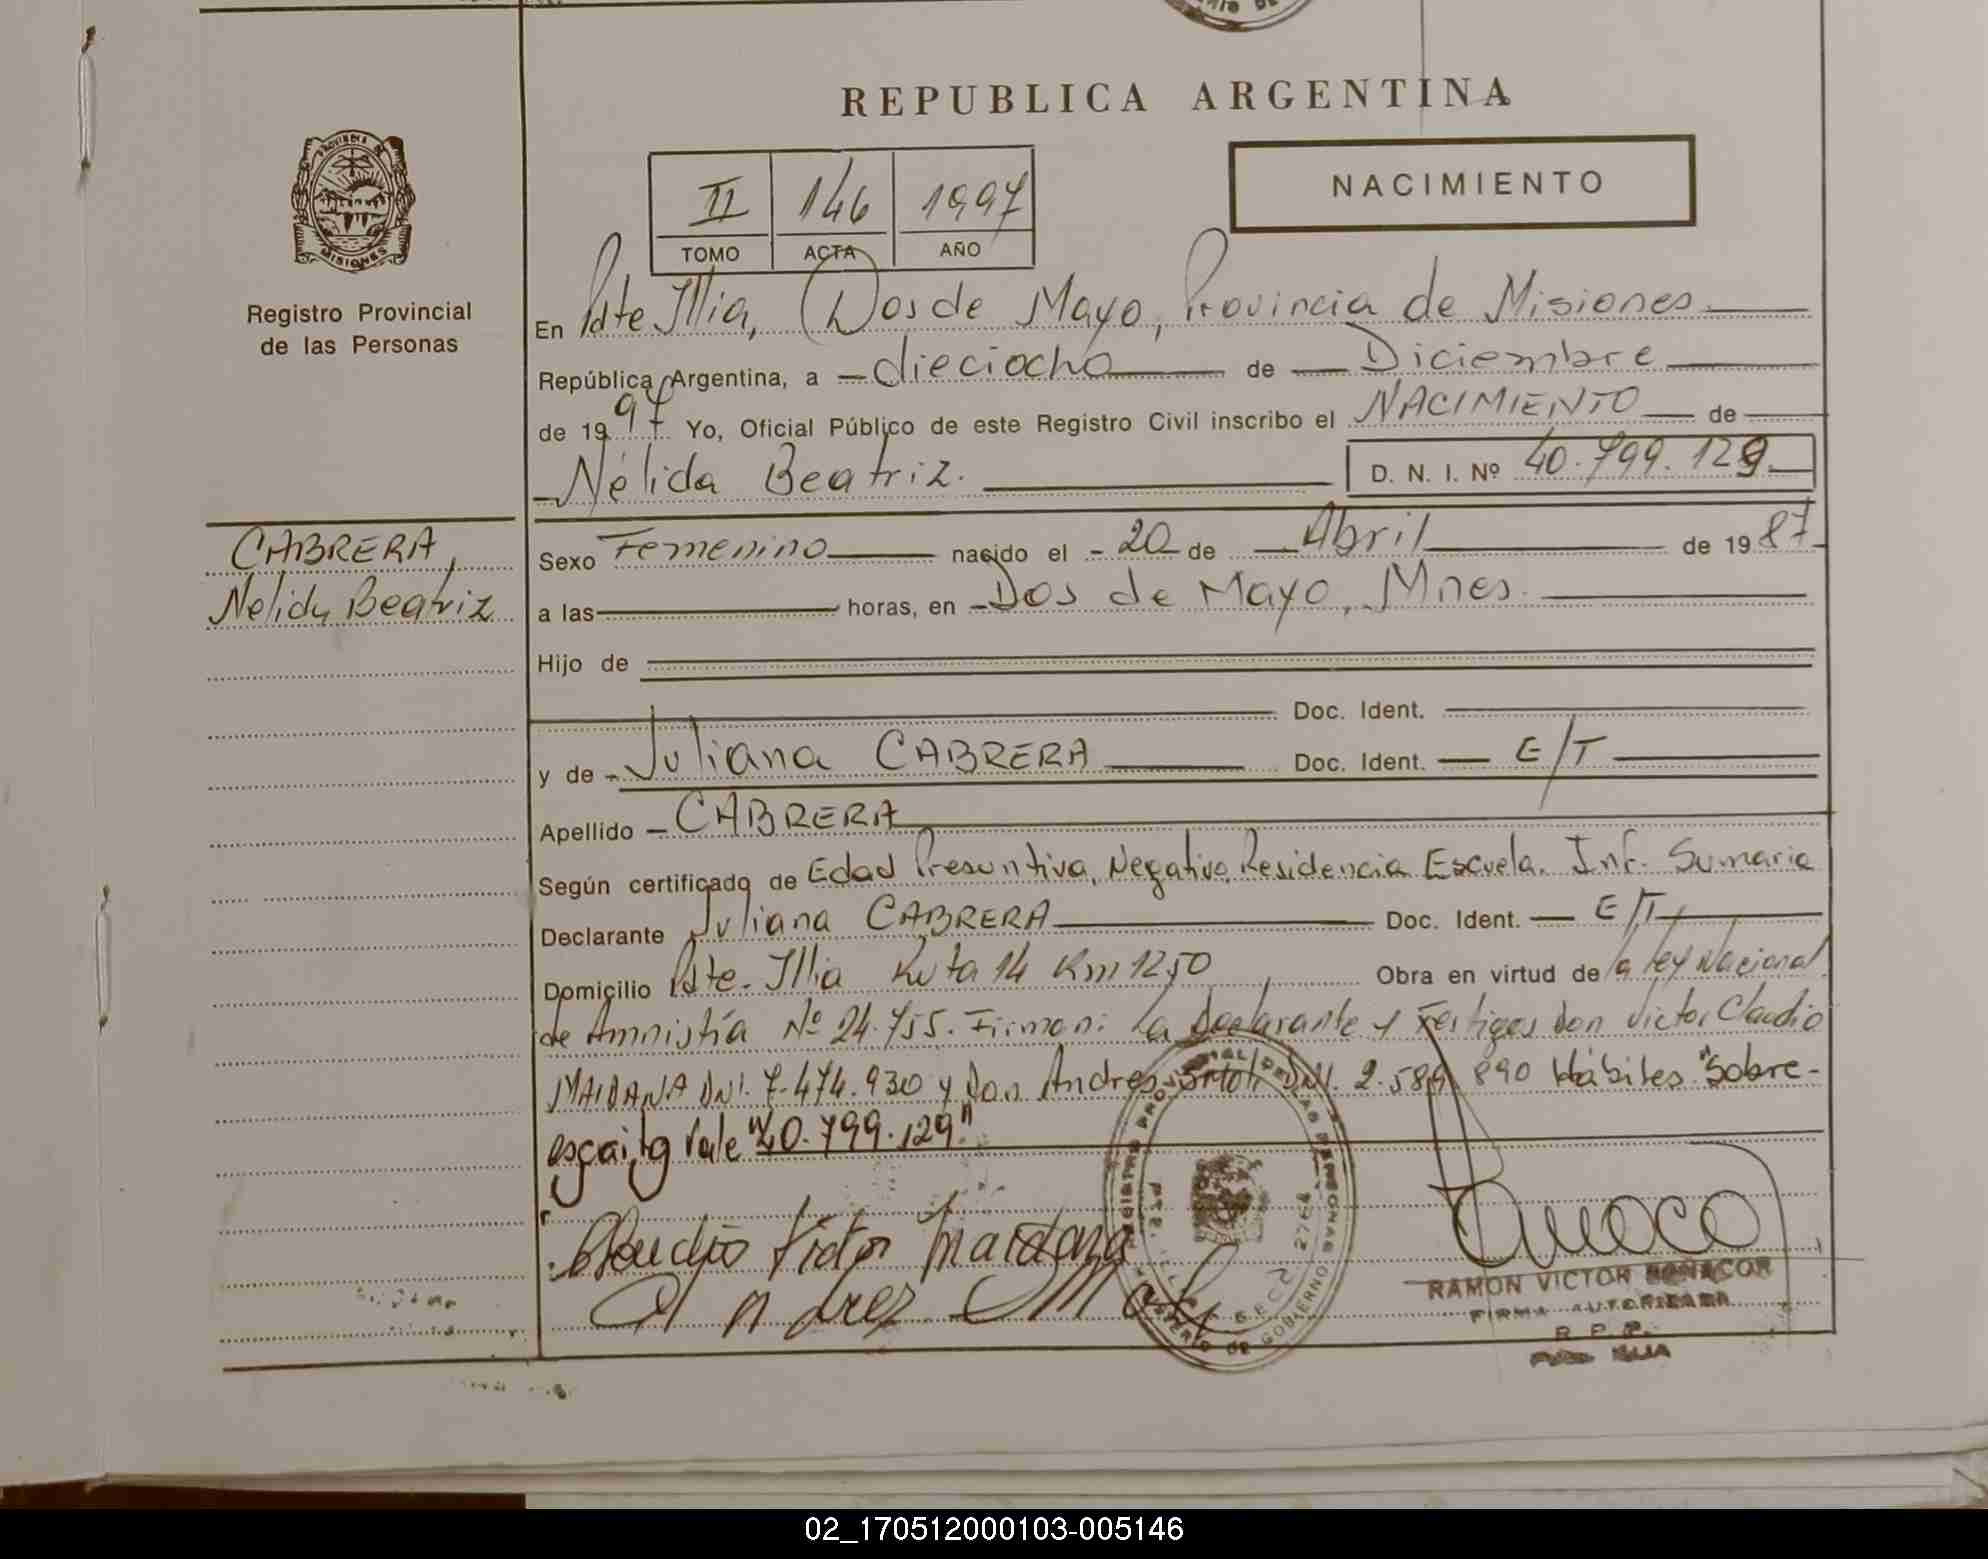 REPUBLICA ARGENTINA
NACIMIENTO
II 146 1997
TOMO ACTA AÑO
PROVINCIA DE
MISIONES
Registro Provincial
de las Personas
En Pdte Illia, Dos de Mayo, Provincia de Misiones
República Argentina, a dieciocho de Diciembre
de 1997 Yo, Oficial Público de este Registro Civil inscribo el NACIMIENTO de
Nélida Beatriz. D. N. I. Nº 40.799.129
CABRERA,
Nelida Beatriz
Sexo Femenino nacido el 20 de Abril de 1987
a las horas, en Dos de Mayo, Mnes.
Hijo de
Doc. Ident.
y de Juliana CABRERA Doc. Ident. E/T
Apellido CABRERA
Según certificado de Edad Presuntiva, Negativo, Residencia Escuela. Inf. Sumaria
Declarante Juliana CABRERA Doc. Ident. E/T
Domicilio Pdte. Illia Ruta 14 Km 1250 Obra en virtud de la ley Nacional
de Amnistía Nº 24.755. Firman: La Declarante y Testigos Don Victor Claudio
MAIDANA DNI. 7.474.930 y Don Andres DNI. 2.589.890 Hábiles "Sobre-
vale "40.799.129"
Claudio Victor Maidana
Andres
REGISTRO PROVINCIAL DE LAS PERSONAS
MINISTERIO DE GOBIERNO
RAMON VICTOR
FIRMA AUTORIZADA
R. P. P.
02_170512000103-005146